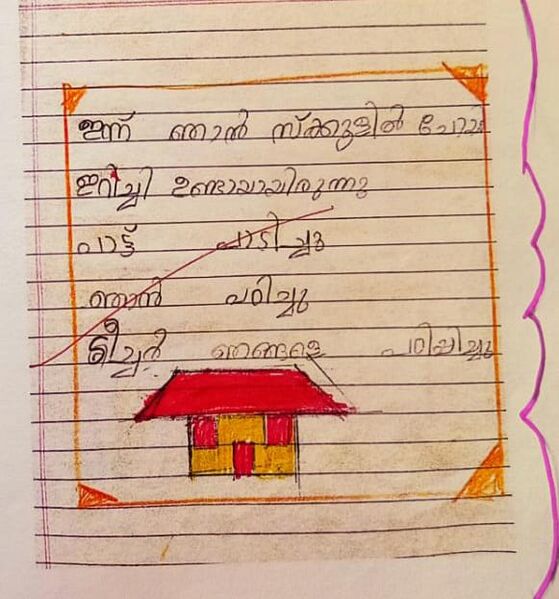 ഇന്ന് ഞാൻ സ്ക്കുളിൽ ചോറും
ഇറിച്ചി ഉണ്ടായായിരുന്നു
പാട്ട് പാടിച്ചു
ഞാൻ പഠിച്ചു
ടീച്ചർ ഞങ്ങളെ പഠിപ്പിച്ചു